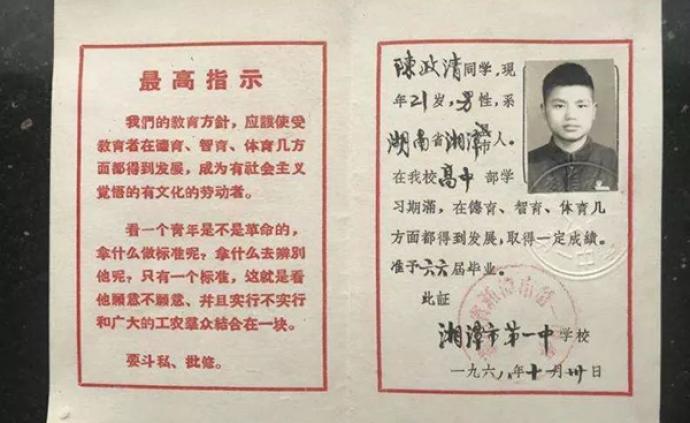 最高指示
我們的敎育方針，应該使受
敎育者在德育、智育、体育几方
面都得到发展，成为有社会主义
覚悟的有文化的劳动者。
看一个青年是不是革命的，
拿什么做标准呢？拿什么去辨別
他呢？只有一个标准，这就是看
他願意不願意、并且实行不实行
和广大的工农羣众結合在一块。
要斗私、批修。
陳政清同学，現
年21岁，男性，系
湖南省湘潭县市人。
在我校高中部学
习期滿，在德育、智育、体育几
方面都得到发展，取得一定成績。
准予六六届毕业。
此証
湘潭市第一中学校
一九六 年十一月卅日